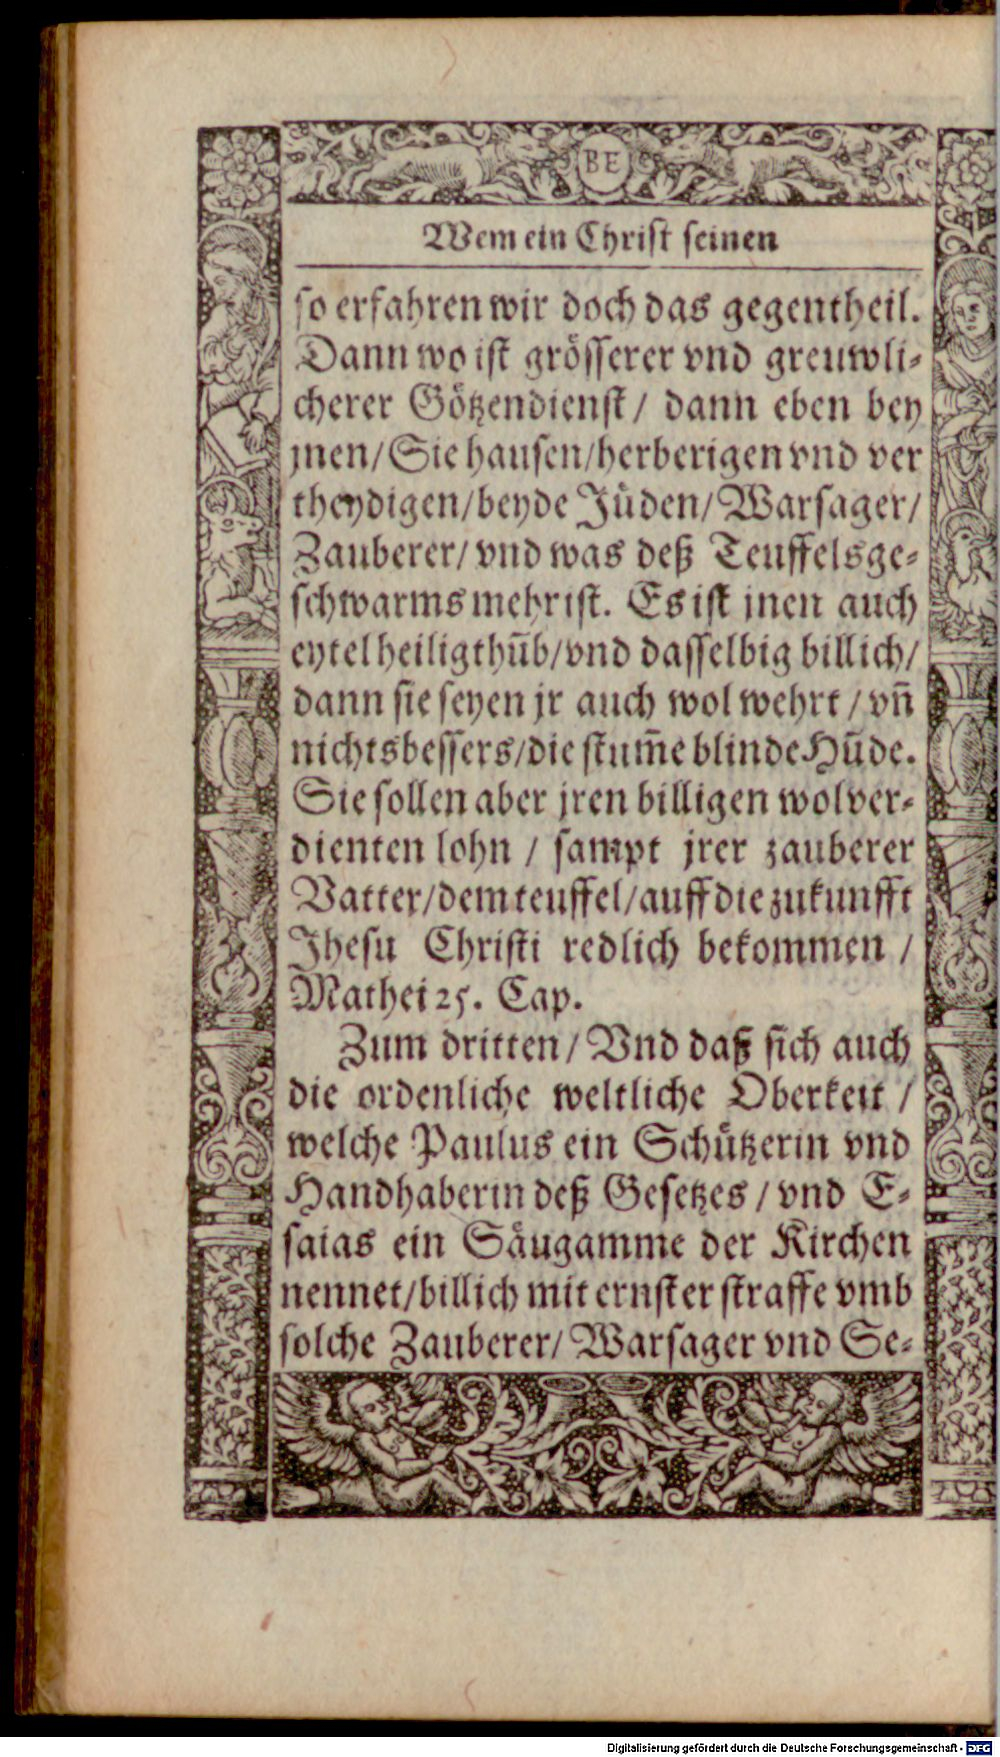 BE
Wem ein Christ seinen
so erfahren wir doch das gegentheil.
Dann wo ist grösserer vnd greuwli-
cherer Götzendienst / dann eben bey
jnen/Sie hausen/herberigen vnd ver
theydigen/beyde Jüden/Warsager/
Zauberer/ vnd was deß Teuffelsge-
schwarms mehr ist. Es ist jnen auch
eytel heiligthūb/vnd dasselbig billich/
dann sie seyen jr auch wol wehrt / vn̄
nichts bessers/die stum̄e blinde Hūde.
Sie sollen aber jren billigen wolver-
dienten lohn / sampt jrer zauberer
Vatter/dem teuffel/auff die zukunfft
Jhesu Christi redlich bekommen /
Mathei 25. Cap.
Zum dritten / Vnd daß sich auch
die ordenliche weltliche Oberkeit /
welche Paulus ein Schützerin vnd
Handhaberin deß Gesetzes / vnd E-
saias ein Säugamme der Kirchen
nennet/billich mit ernster straffe vmb
solche Zauberer/ Warsager vnd Se-
Digitalisierung gefördert durch die Deutsche Forschungsgemeinschaft - DFG